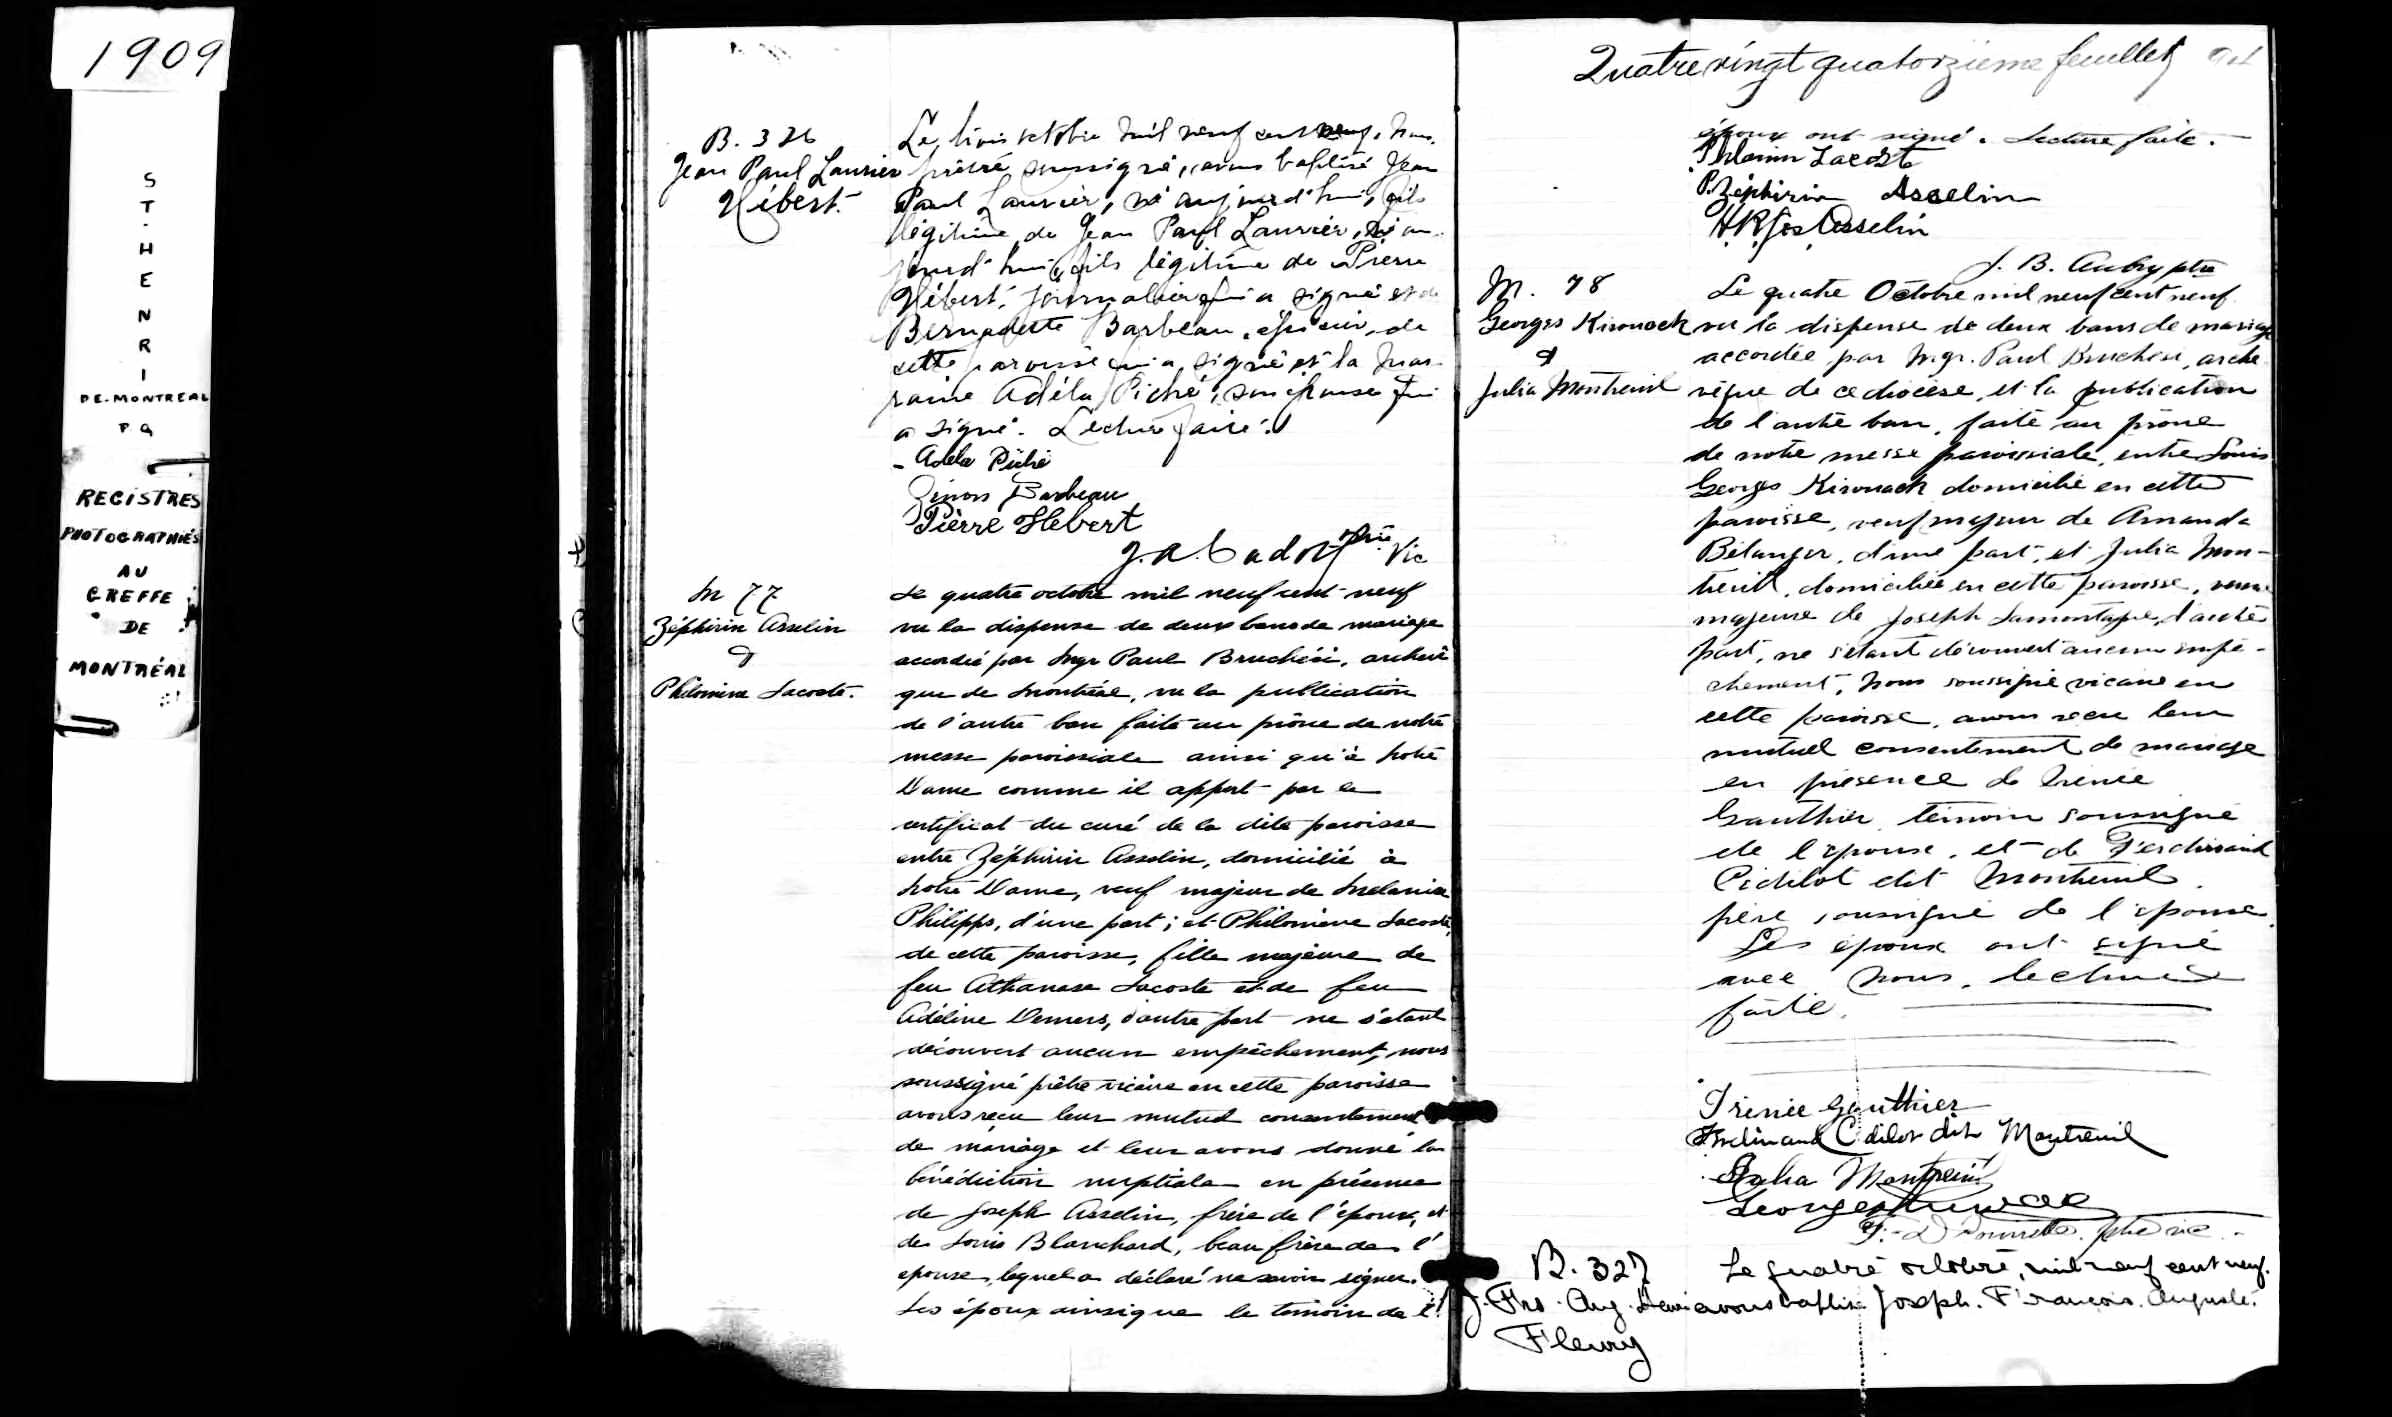 1909
ST. HENRI
DE. MONTREAL
P Q
REGISTRES
PHOTOGRAPHIÉS
AU
GREFFE
DE
MONTRÉAL
B. 326
Jean Paul Laurier
Hébert.
Le trois octobre mil neuf cent neuf, nous
prêtre soussigné, avons baptisé Jean
Paul Laurier, né aujourd'hui, fils
légitime de Jean Paul Laurier, né au-
jourd'hui, fils légitime de Pierre
Hébert, journalier qui a signé et de
Bernadette Barbeau, de
cette paroisse qui a signé et la mar-
raine Adéla Piché, son épouse qui
a signé. Lecture faite.
- Adela Piché
Zenon Barbeau
Pierre Hebert
J. A. Cadot ptre Vic
M 77
Zéphirin Asselin
&
Philomène Lacoste.
Le quatre octobre mil neuf cent neuf
vu la dispense de deux bans de mariage
accordée par Mgr Paul Bruchési, archevê
que de Montréal, vu la publication
de l'autre ban faite au prône de notre
messe paroissiale ainsi qu'à Notre
Dame comme il appert par le
certificat du curé de la dite paroisse
entre Zéphirin Asselin, domicilié à
Notre Dame, veuf majeur de Mélanie
Philipps, d'une part; et Philomène Lacoste,
de cette paroisse, fille majeure de
feu Athanase Lacoste et de feu
Adéline Demers, d'autre part ne s'étant
découvert aucun empêchement, nous
soussigné prêtre vicaire en cette paroisse
avons reçu leur mutuel consentement
de mariage et leur avons donné la
bénédiction nuptiale en présence
de Joseph Asselin, frère de l'époux, et
de Louis Blanchard, beau frère de l'
épouse, lequel a déclaré ne savoir signer.
Les époux ainsi que le témoin de l'
Quatre vingt quatorzième feuillet 94
époux ont signé. Lecture faite.
Philomin Lacoste
P. Zéphirin Asselin
Jos Asselin
J. B. Aubry ptre
M. 78
Georges Kirouack
&
Julia Montreuil
Le quatre Octobre mil neuf cent neuf
vu la dispense de deux bans de mariage
accordée par Mgr. Paul Bruchesi, arche
vêque de ce diocèse, et la publication
de l'autre ban, faite au prône
de notre messe paroissiale, entre Louis
Georges Kirouack domicilié en cette
paroisse, veuf majeur de Amanda
Bélanger, d'une part, et Julia Mon-
treuil, domiciliée en cette paroisse, veuve
majeure de Joseph Lamontagne, d'autre
part, ne s'étant découvert aucun empê-
chement, nous soussigné vicaire en
cette paroisse, avons reçu leur
mutuel consentement de mariage
en présence de Irénée
Gauthier témoin soussigné
de l'épouse, et de Ferdinand
Cédilot dit Montreuil
père soussigné de l'épouse.
Les époux ont signé
avec nous, lecture
faite.
Irénée Gauthier
Ferdinand Cédilot dit Montreuil
Julia Montreuil
Georges Kirouac
ptre vic.
B. 327
J. Frs. Aug. Henri
Fleury
Le quatre octobre, mil neuf cent neuf.
avons baptisé Joseph. François. Auguste.